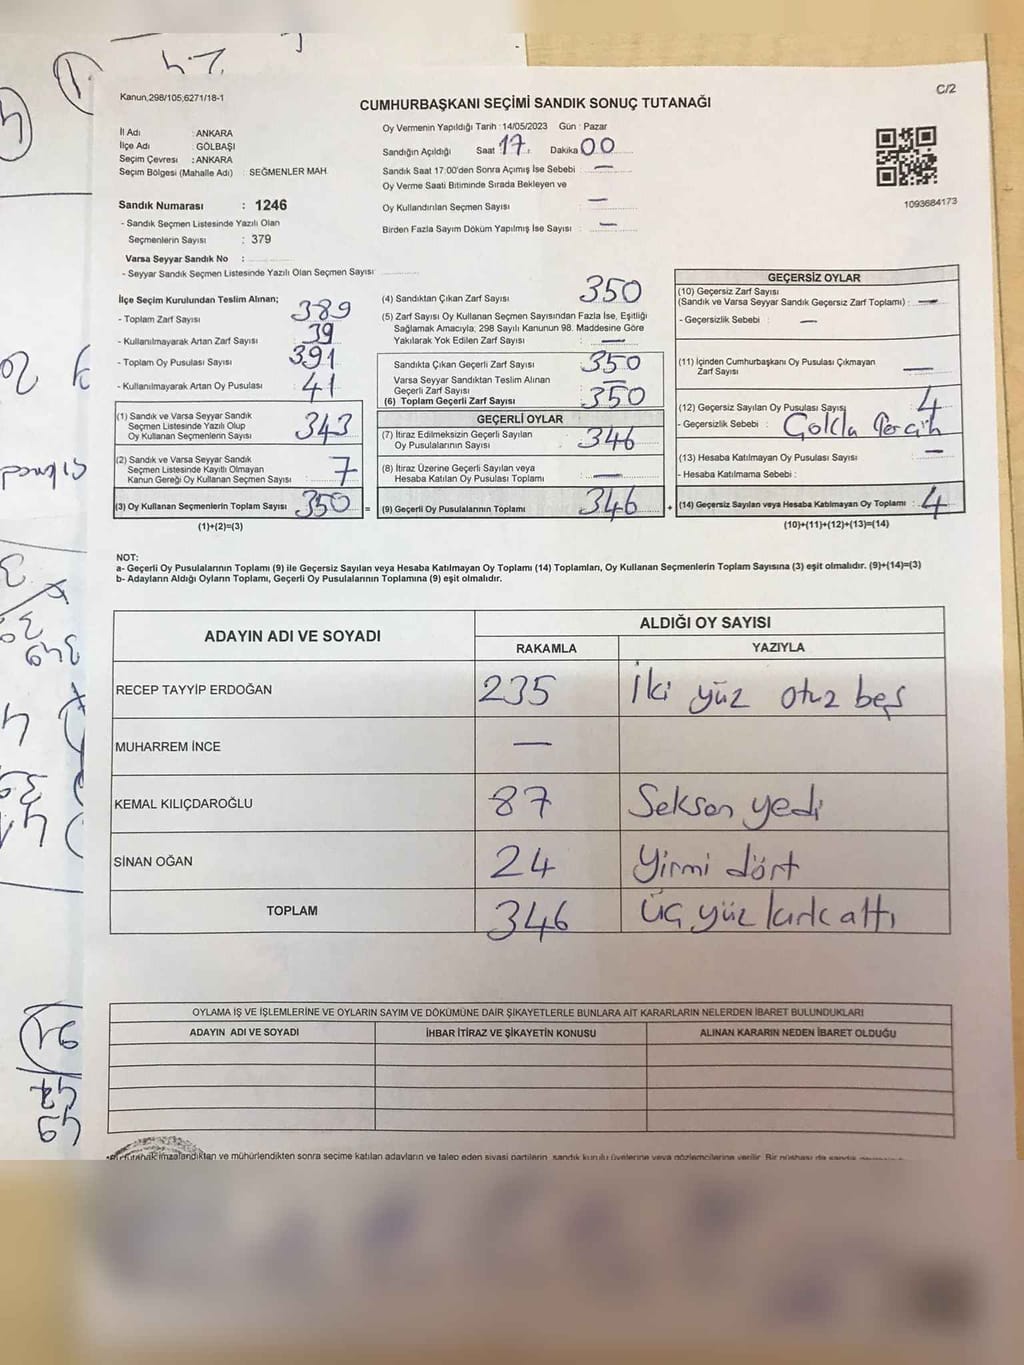 C/2
Kanun,298/105;6271/18-1
CUMHURBAŞKANI SEÇİMİ SANDIK SONUÇ TUTANAĞI
İl Adı : ANKARA
İlçe Adı : GÖLBAŞI
Seçim Çevresi : ANKARA
Seçim Bölgesi (Mahalle Adı) : SEĞMENLER MAH
Sandık Numarası : 1246
- Sandık Seçmen Listesinde Yazılı Olan
Seçmenlerin Sayısı : 379
Varsa Seyyar Sandık No :
- Seyyar Sandık Seçmen Listesinde Yazılı Olan Seçmen Sayısı
Oy Vermenin Yapıldığı Tarih : 14/05/2023 Gün : Pazar
Sandığın Açıldığı Saat 17 Dakika 00
Sandık Saat 17:00'den Sonra Açımış İse Sebebi : —
Oy Verme Saati Bitiminde Sırada Bekleyen ve
Oy Kullandırılan Seçmen Sayısı —
Birden Fazla Sayım Döküm Yapılmış İse Sayısı : —
1093684173
İlçe Seçim Kurulundan Teslim Alınan;
- Toplam Zarf Sayısı 389
- Kullanılmayarak Artan Zarf Sayısı 39
- Toplam Oy Pusulası Sayısı 391
- Kullanılmayarak Artan Oy Pusulası 41
(1) Sandık ve Varsa Seyyar Sandık
Seçmen Listesinde Yazılı Olup
Oy Kullanan Seçmenlerin Sayısı 343
(2) Sandık ve Varsa Seyyar Sandık
Seçmen Listesinde Kayıtlı Olmayan
Kanun Gereği Oy Kullanan Seçmen Sayısı : 7
(3) Oy Kullanan Seçmenlerin Toplam Sayısı : 350 =
(1)+(2)=(3)
(4) Sandıktan Çıkan Zarf Sayısı 350
(5) Zarf Sayısı Oy Kullanan Seçmen Sayısından Fazla İse, Eşitliği
Sağlamak Amacıyla, 298 Sayılı Kanunun 98. Maddesine Göre
Yakılarak Yok Edilen Zarf Sayısı : —
Sandıkta Çıkan Geçerli Zarf Sayısı : 350
Varsa Seyyar Sandıktan Teslim Alınan
Geçerli Zarf Sayısı : —
(6) Toplam Geçerli Zarf Sayısı : 350
GEÇERLİ OYLAR
(7) İtiraz Edilmeksizin Geçerli Sayılan
Oy Pusulalarının Sayısı : 346
(8) İtiraz Üzerine Geçerli Sayılan veya
Hesaba Katılan Oy Pusulası Toplamı : —
(9) Geçerli Oy Pusulalarının Toplamı : 346 +
GEÇERSİZ OYLAR
(10) Geçersiz Zarf Sayısı
(Sandık ve Varsa Seyyar Sandık Geçersiz Zarf Toplamı) : —
- Geçersizlik Sebebi : —
(11) İçinden Cumhurbaşkanı Oy Pusulası Çıkmayan
Zarf Sayısı —
(12) Geçersiz Sayılan Oy Pusulası Sayısı 4
- Geçersizlik Sebebi :
(13) Hesaba Katılmayan Oy Pusulası Sayısı : —
- Hesaba Katılmama Sebebi :
(14) Geçersiz Sayılan veya Hesaba Katılmayan Oy Toplamı : 4
(10)+(11)+(12)+(13)=(14)
NOT:
a- Geçerli Oy Pusulalarının Toplamı (9) ile Geçersiz Sayılan veya Hesaba Katılmayan Oy Toplamı (14) Toplamları, Oy Kullanan Seçmenlerin Toplam Sayısına (3) eşit olmalıdır. (9)+(14)=(3)
b- Adayların Aldığı Oyların Toplamı, Geçerli Oy Pusulalarının Toplamına (9) eşit olmalıdır.
ADAYIN ADI VE SOYADI ALDIĞI OY SAYISI
RAKAMLA YAZIYLA
RECEP TAYYİP ERDOĞAN 235 İki yüz otuz beş
MUHARREM İNCE —
KEMAL KILIÇDAROĞLU 87 Seksen yedi
SİNAN OĞAN 24 Yirmi dört
TOPLAM 346 Üç yüz kırk altı
OYLAMA İŞ VE İŞLEMLERİNE VE OYLARIN SAYIM VE DÖKÜMÜNE DAİR ŞİKAYETLERLE BUNLARA AİT KARARLARIN NELERDEN İBARET BULUNDUKLARI
ADAYIN ADI VE SOYADI İHBAR İTİRAZ VE ŞİKAYETİN KONUSU ALINAN KARARIN NEDEN İBARET OLDUĞU
imzalandıktan ve mühürlendikten sonra seçime katılan adayların ve talep eden siyasi partilerin, sandık kurulu üyelerine veya gözlemcilerine verilir. Bir nüshası da sandık